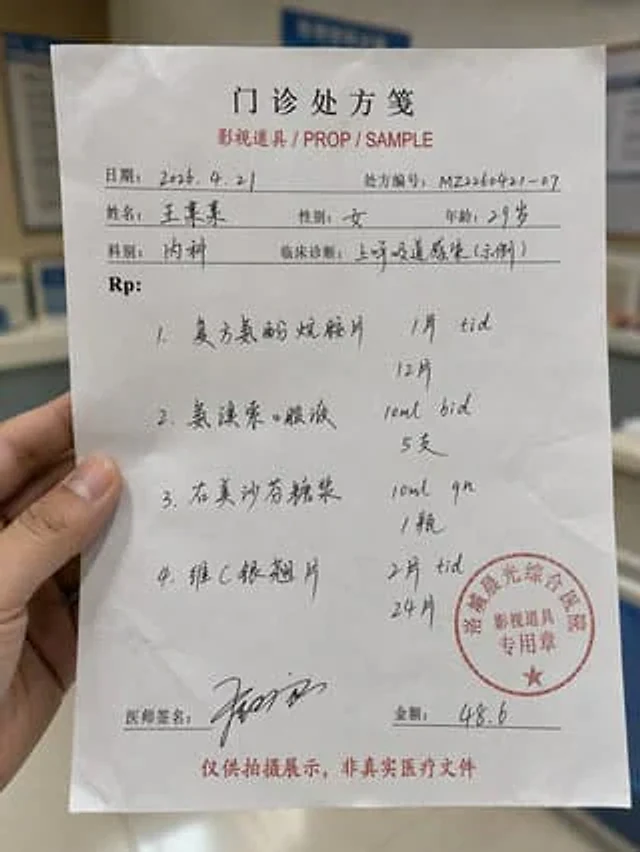 门诊处方笺
影视道具 / PROP / SAMPLE
日期: 2026.4.21 处方编号: MZ2260421-07
姓名: 王某某 性别: 女 年龄: 29岁
科别: 内科 临床诊断: 上呼吸道感染(示例)
Rp:
1. 复方氨酚烷胺片 1片 tid
12片
2. 氨溴索口服液 10ml bid
5支
3. 右美沙芬糖浆 10ml qn
1瓶
4. 维C银翘片 2片 tid
24片
晨光综合医院
影视道具
专用章
医师签名: 金额: 48.6
仅供拍摄展示，非真实医疗文件